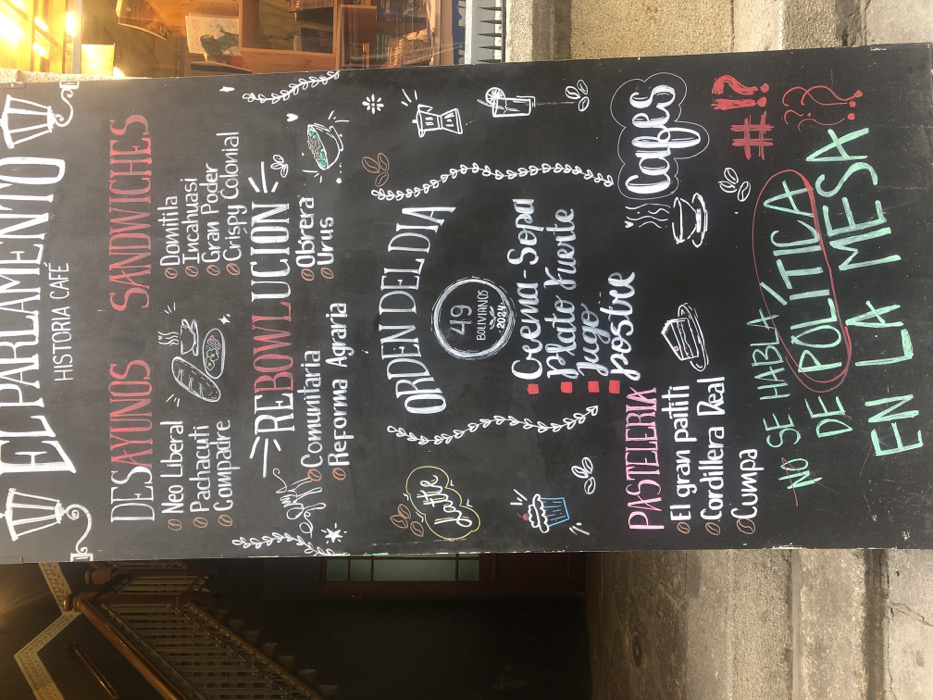 EL PARLAMENTO
HISTORIA CAFÉ
DESAYUNOS
Neo Liberal
Pachacuti
Compadre
SANDWICHES
Domitila
Incahuasi
Gran Poder
Crispy Colonial
REBOWLUCION
Comunitaria
Reforma Agraria
Obrera
Urus
ORDEN DEL DIA
49
BOLIVIANOS
2024
Crema-Sopa
Plato Fuerte
Jugo
postre
Latte
Cafes
PASTELERIA
El gran patiti
Cordillera Real
Cumpa
#!?
NO SE HABLA
DE POLÍTICA
EN LA MESA